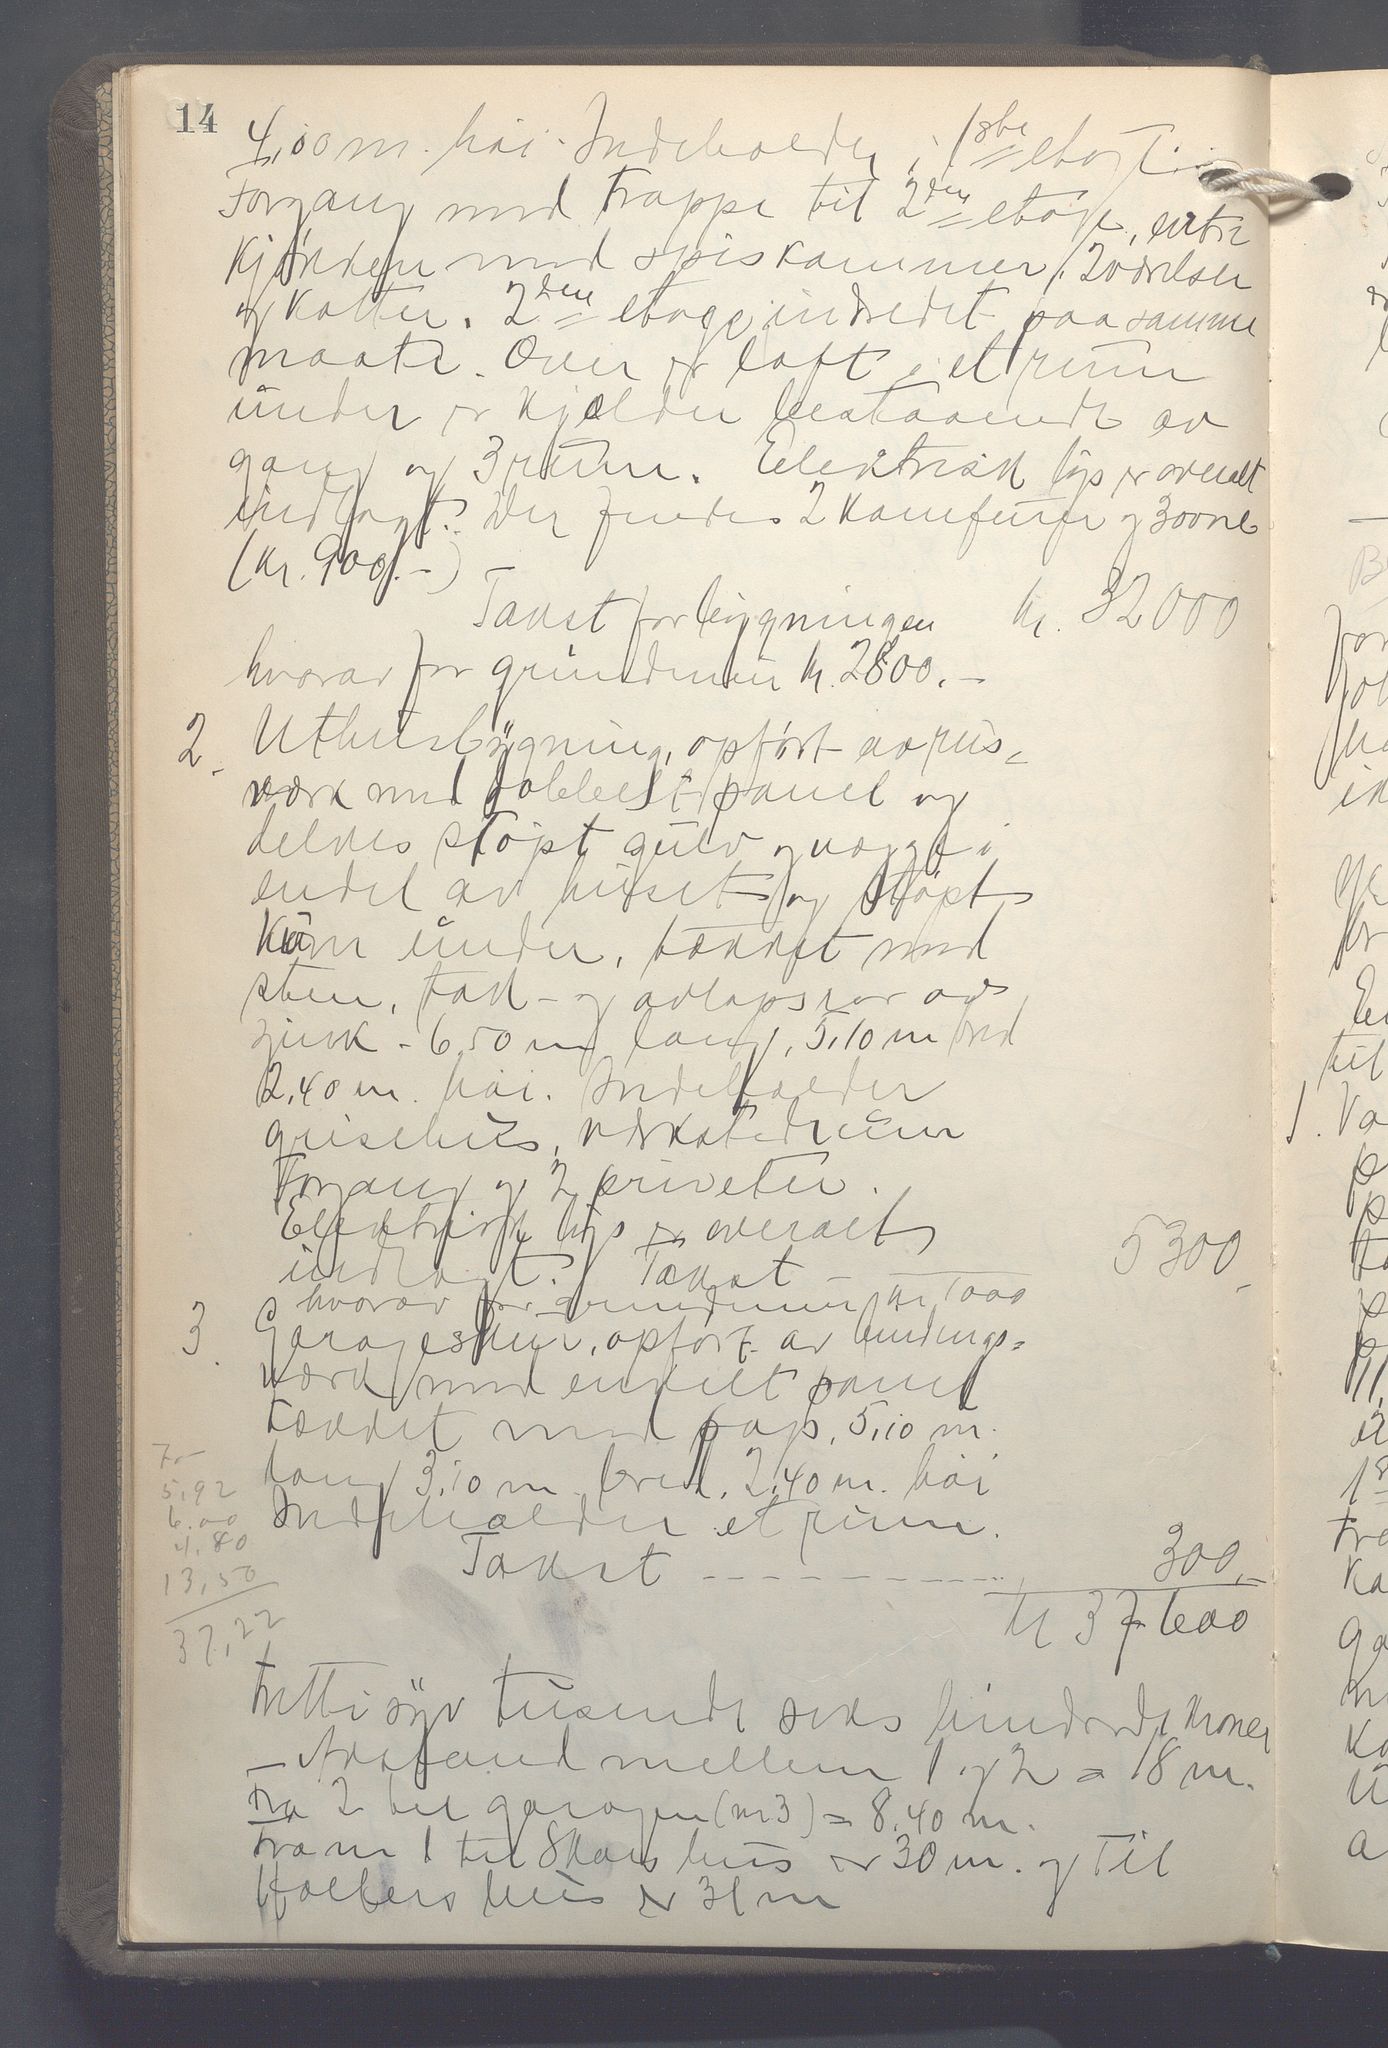 14
4,00 m. höi. Indeholder i 1ste etage:
Forgang med trappe til 2den etage, entre
kjökken med spiskammer, 2 værelser
og kotter. 2den etage indredet paa samme
maate. Over er loft i et rum
under er kjelder bestaaende av
gang og 3 rum. Elektrisk lys er overalt
indlagt. Der findes 2 komfurer og 3 ovne
(kr. 900.-)
Takst for bygningen kr. 32000
hvorav for grundmur kr. 2800.-
2. Uthusbygning, opfört av reis-
værk med dobbelt panel og
deldes stöpt gulv og vægge i
endel av huset og stöpt
kum under, tækket med
sten, tak- og avlöpsrör av
zink - 6,50 m lang, 5,10 m bred
2,40 m. höi. Indeholder
grisehus, verkstedrum
Forgang og 2 priveter.
Elektrisk lys er overalt
indlagt. Takst - 5300.-
hvorav for grundmur kr 1000
3. Garageskur, opfört av bindings-
værk med enkelt panel
tækket med pap, 5,10 m.
lang 3,10 m bred, 2,40 m. höi
Indeholder et rum.
Takst - - - - - - - - - 300.-
kr 37600
7-
5,92
6.00
4,80
13,50
37,22
Tretti syv tusende seks hundrede kroner
- Avstand mellem 1 og 2 = 18 m.
Fra 2 til garagen (nr 3) = 8,40 m.
Fra nr 1 til Skars hus er 30 m. og til
hus er 31 m